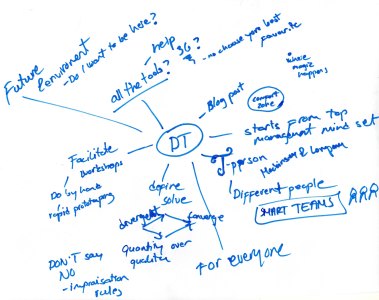 Future
environment
- Do I want to be here?
all the tools?
- help
3G?
- no choose your best
favourite
where
magic
happens
Blog post
comfort
zone
DT
starts from top
management mind set
T-person
Different people
SMART TEAMS
Facilitate
workshops
Do by hand
rapid prototyping
define
solve
divergent
converge
Quantity over
qualitity
DON'T say
NO
- improisation
rules
For everyone